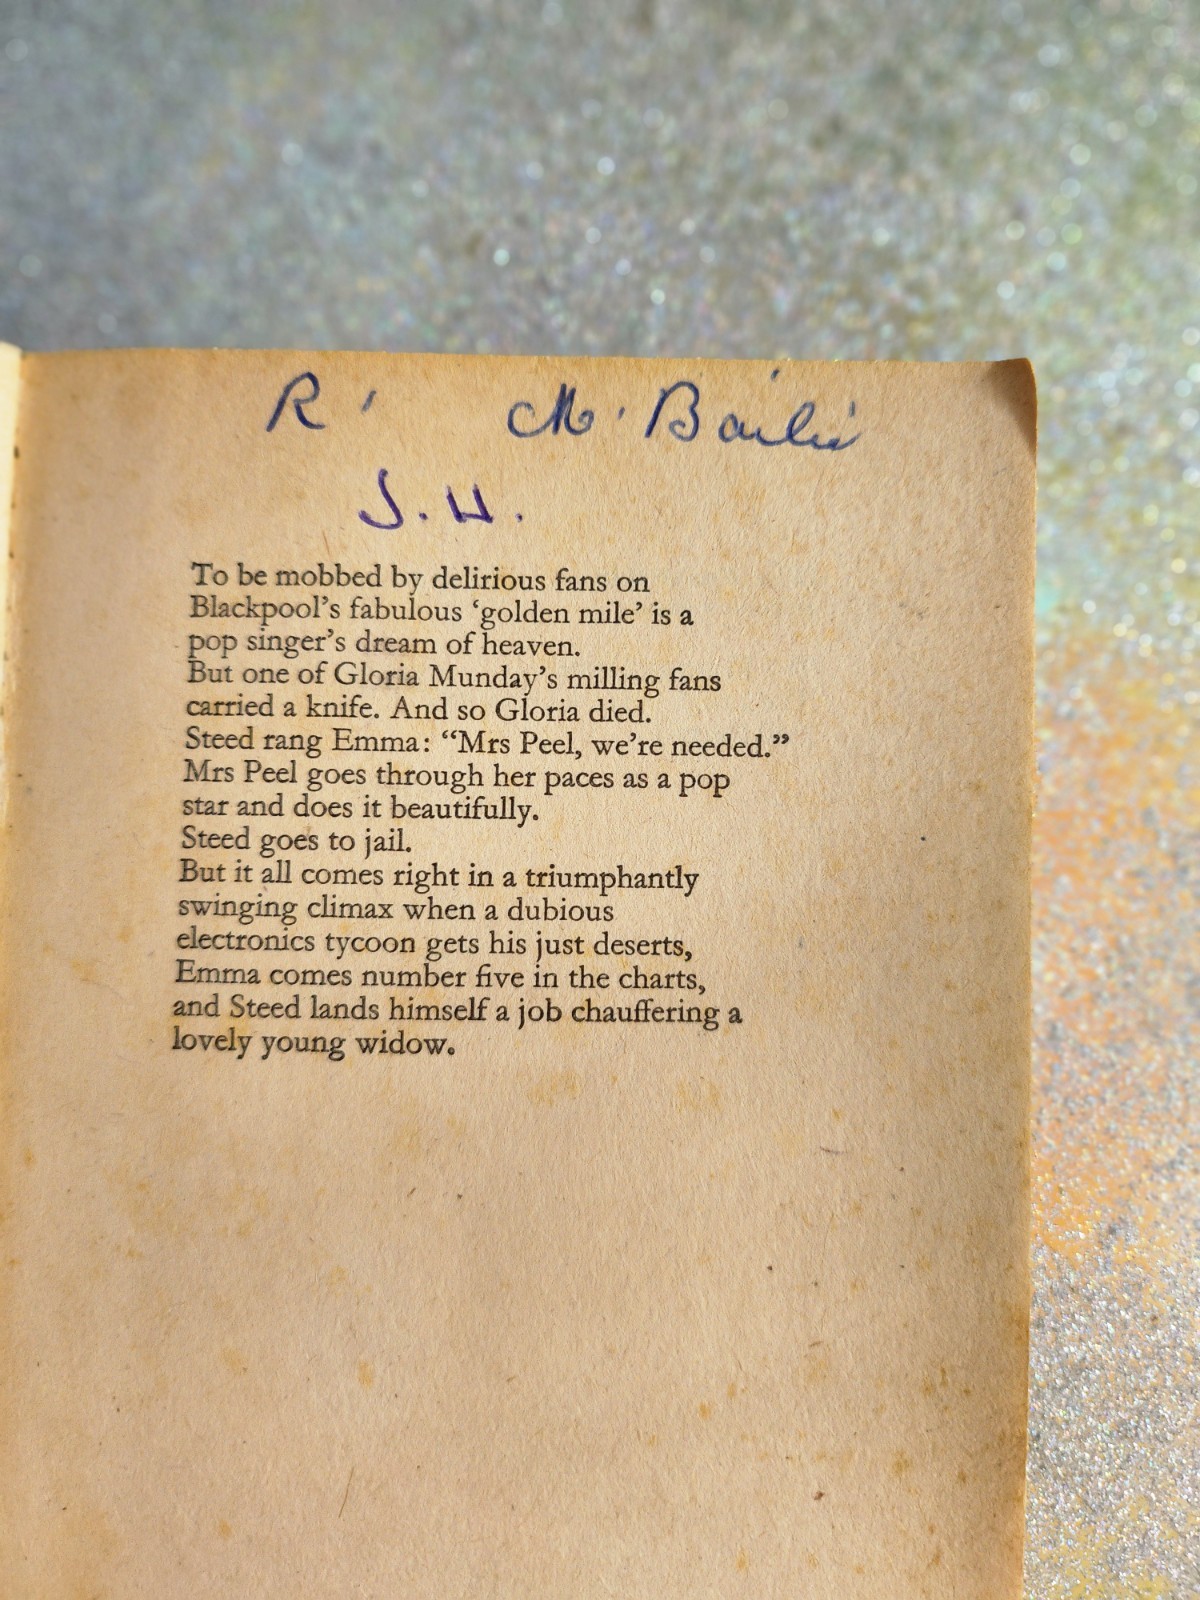 R. M. Bailie
J. H.
To be mobbed by delirious fans on
Blackpool’s fabulous ‘golden mile’ is a
pop singer’s dream of heaven.
But one of Gloria Munday’s milling fans
carried a knife. And so Gloria died.
Steed rang Emma: “Mrs Peel, we’re needed.”
Mrs Peel goes through her paces as a pop
star and does it beautifully.
Steed goes to jail.
But it all comes right in a triumphantly
swinging climax when a dubious
electronics tycoon gets his just deserts,
Emma comes number five in the charts,
and Steed lands himself a job chauffering a
lovely young widow.